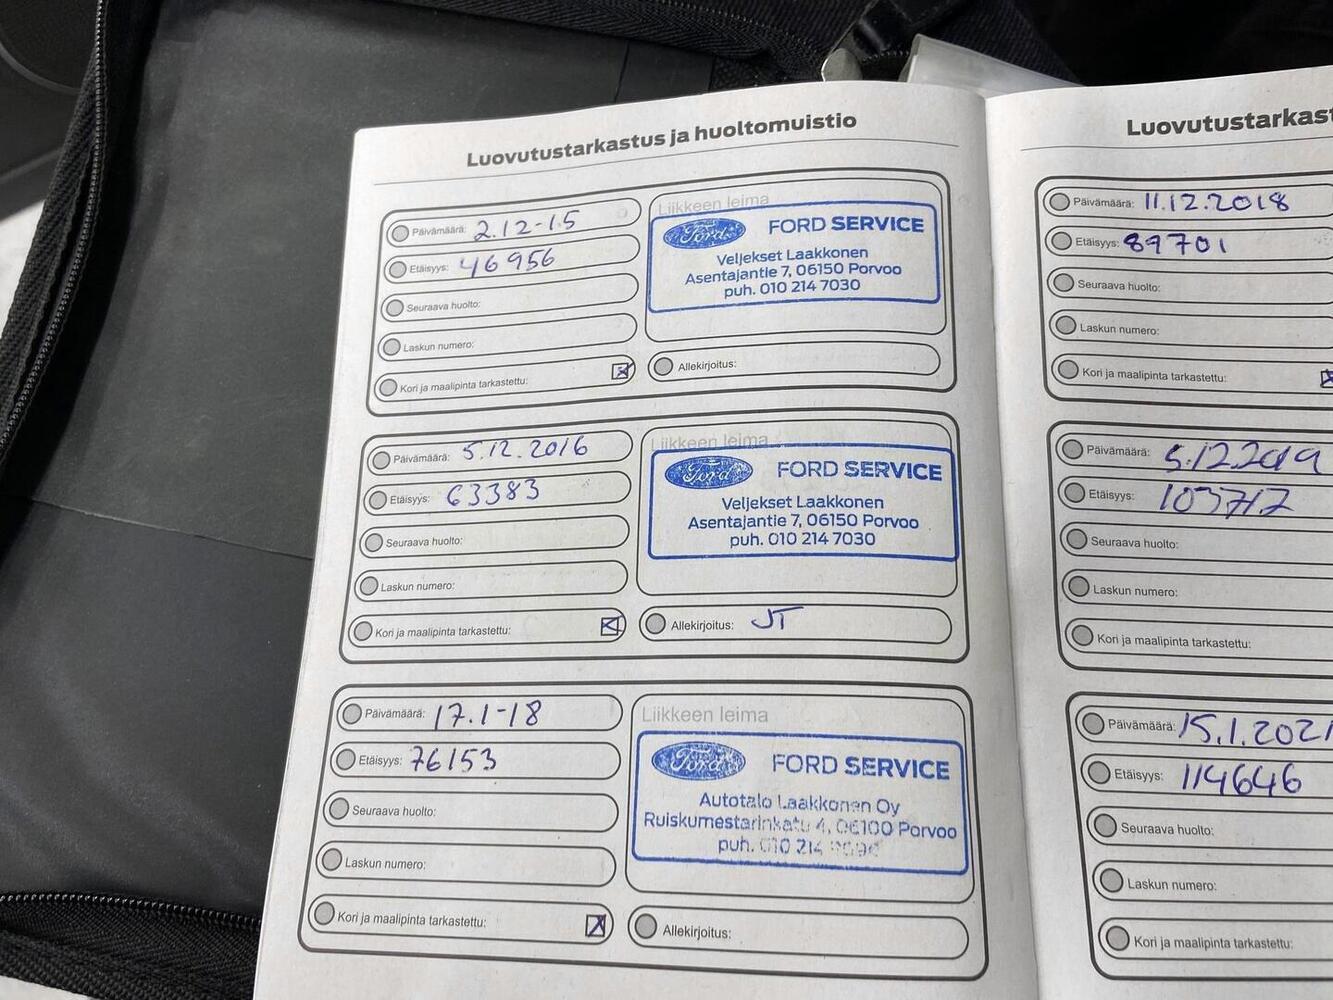 Luovutustarkastus ja huoltomuistio
Päivämäärä: 2.12-15
Etäisyys: 46956
Seuraava huolto:
Laskun numero:
Kori ja maalipinta tarkastettu:
Liikkeen leima
Ford FORD SERVICE
Veljekset Laakkonen
Asentajantie 7, 06150 Porvoo
puh. 010 214 7030
Allekirjoitus:
Päivämäärä: 5.12.2016
Etäisyys: 63383
Seuraava huolto:
Laskun numero:
Kori ja maalipinta tarkastettu:
Liikkeen leima
Ford FORD SERVICE
Veljekset Laakkonen
Asentajantie 7, 06150 Porvoo
puh. 010 214 7030
Allekirjoitus: JT
Päivämäärä: 17.1-18
Etäisyys: 76153
Seuraava huolto:
Laskun numero:
Kori ja maalipinta tarkastettu:
Liikkeen leima
Ford FORD SERVICE
Autotalo Laakkonen Oy
Ruiskumestarinkatu 4, 06100 Porvoo
puh. 010 214
Allekirjoitus:
Luovutustarkast
Päivämäärä: 11.12.2018
Etäisyys: 89701
Seuraava huolto:
Laskun numero:
Kori ja maalipinta tarkastettu:
Päivämäärä: 5.12.2019
Etäisyys: 103717
Seuraava huolto:
Laskun numero:
Kori ja maalipinta tarkastettu:
Päivämäärä: 15.1.2021
Etäisyys: 114646
Seuraava huolto:
Laskun numero:
Kori ja maalipinta tarkastettu: